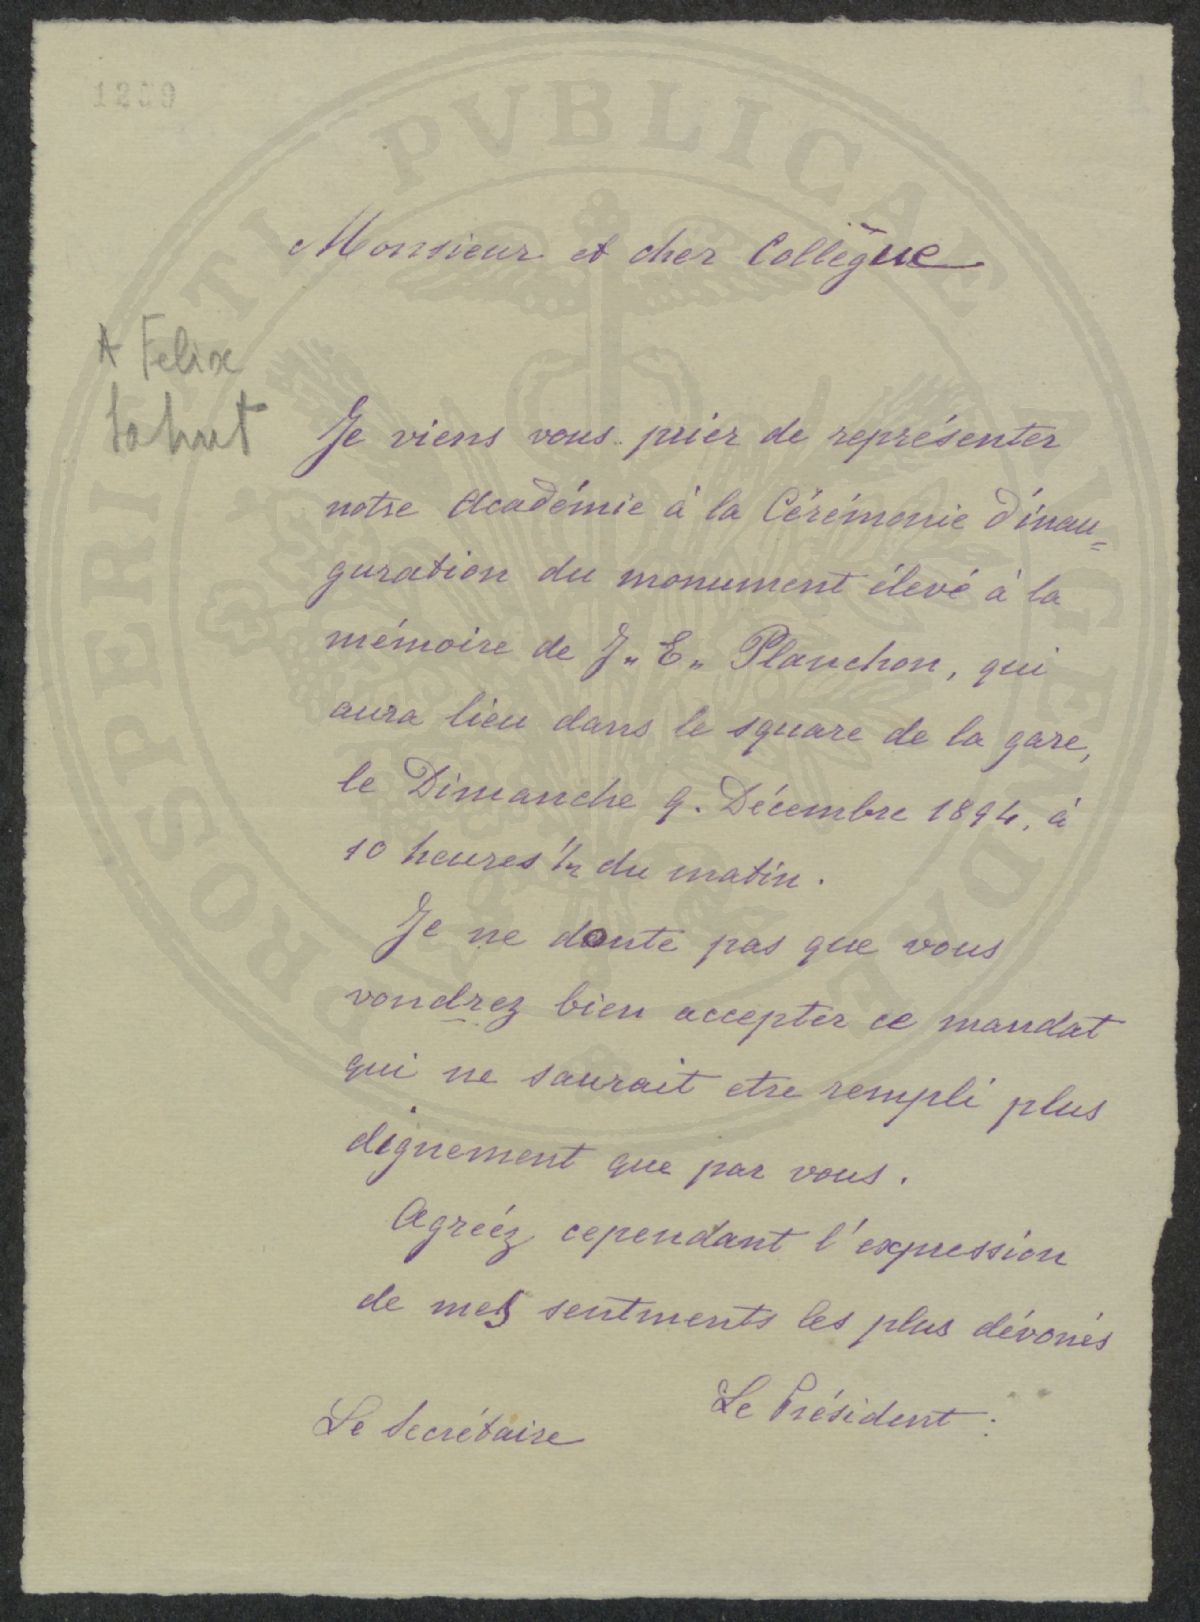 1289
PROSPERITATI PVBLICAE AVGENDAE
Monsieur et cher Collègue
A Felix
Sahut
Je viens vous prier de représenter
notre Académie à la Cérémonie d'inau=
guration du monument élevé à la
mémoire de J. E. Planchon, qui
aura lieu dans le square de la gare,
le Dimanche 9. Décembre 1894, à
10 heures 1/2 du matin.
Je ne doute pas que vous
voudrez bien accepter ce mandat
qui ne saurait etre rempli plus
dignement que par vous.
Agréez cependant l'expression
de mes sentments les plus dévoués
Le Président.
Le Secrétaire